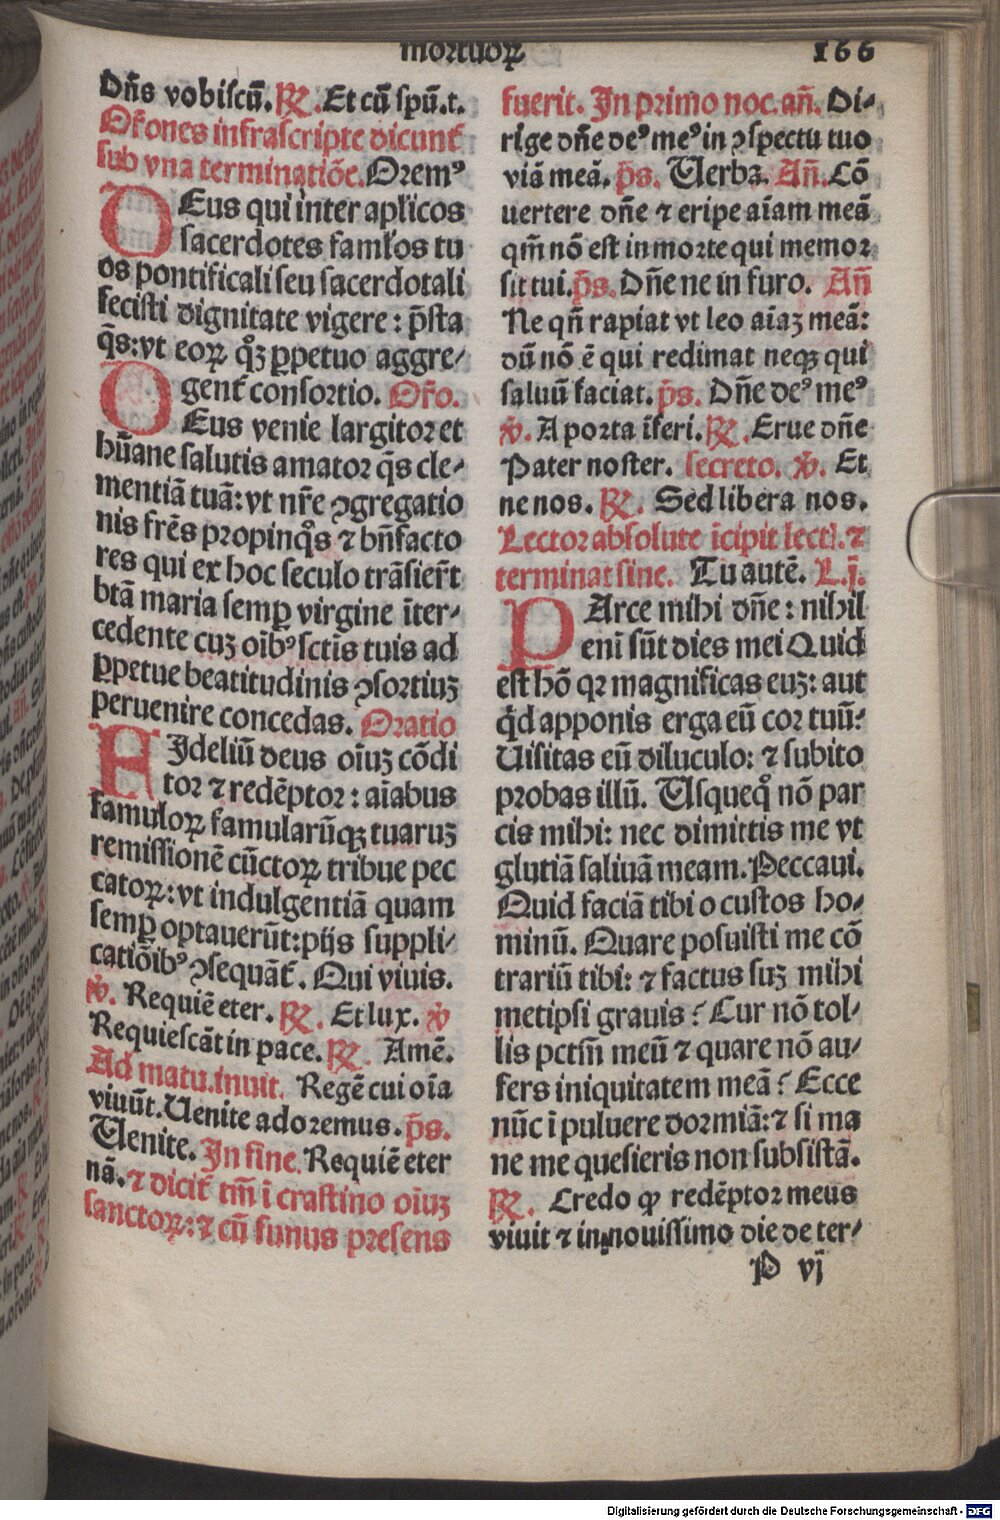 mortuoꝝ 166
Dn̄s vobiscū. ℟. Et cū spū.t.
Orōnes infrascripte dicunt᷑
sub vna terminatiōe. Oremꝰ
DEus qui inter apl̄icos
sacerdotes faml̄os tu
os pontificali seu sacerdotali
fecisti dignitate vigere: p̄sta
q̄s: vt eoꝝ qͦꝫ ꝑpetuo aggre⸗
gent᷑ consortio. Or̄o.
DEus venie largitor et
hūane salutis amator q̄s cle⸗
mentiā tuā: vt nr̄e ꝯgregatio
nis frēs propinqͦs ⁊ bn̄facto
res qui ex hoc seculo trāsier̄t
btā maria semꝑ virgine īter⸗
cedente cuꝫ oībꝰ sctīs tuis ad
ꝑpetue beatitudinis ꝯsortiuꝫ
peruenire concedas. Oratio
FIdeliū deus oīuꝫ cōdi
tor ⁊ redēptor: aīabus
famuloꝝ famularūqꝫ tuaruꝫ
remissionē cūctoꝝ tribue pec
catoꝝ: vt indulgentiā quam
semꝑ optauerūt: pijs suppli⸗
catiōibꝰ ꝯsequāt᷑. Qui viuis.
℣. Requiē eter. ℟. Et lux. ℣
Requiescāt in pace. ℟. Amē.
Ad matu. inuit. Regē cui oīa
viuūt. Uenite adoremus. p̄s.
Uenite. In fine. Requiē eter
nā. ⁊ dicit᷑ tm̄ ī crastino oīuꝫ
sanctoꝝ: ⁊ cū funus presens
fuerit. In primo noc. an̄. Di⸗
rige dn̄e deꝰ meꝰ in ꝯspectu tuo
viā meā. p̄s. Uerba. An̄. Cō
uertere dn̄e ⁊ eripe aīam meā
qm̄ nō est in morte qui memor
sit tui. p̄s. Dn̄e ne in furo. An̄
Ne qn̄ rapiat vt leo aīaꝫ meā:
dū nō ē qui redimat neqꝫ qui
saluū faciat. p̄s. Dn̄e deꝰ meꝰ
℣. A porta īferi. ℟. Erue dn̄e
Pater noster. secreto. ℣. Et
ne nos. ℟. Sed libera nos.
Lector absolute īcipit lectī. ⁊
terminat sine. Tu autē. L.j.
PArce mihi dn̄e: nihil
enī sūt dies mei Quid
est hō qꝛ magnificas euꝫ: aut
qͥd apponis erga eū cor tuū?
Uisitas eū diluculo: ⁊ subito
probas illū. Usqueqͦ nō par
cis mihi: nec dimittis me vt
glutiā saliuā meam. Peccaui.
Quid faciā tibi o custos ho⸗
minū. Quare posuisti me cō
trariū tibi: ⁊ factus suꝫ mihi
metipsi grauis? Cur nō tol⸗
lis pctm̄ meū ⁊ quare nō au⸗
fers iniquitatem meā? Ecce
nūc ī puluere dormiā: ⁊ si ma
ne me quesieris non subsistā.
℟. Credo ꝙ redēptor meus
viuit ⁊ in nouissimo die de ter⸗
P vj
Digitalisierung gefördert durch die Deutsche Forschungsgemeinschaft - DFG